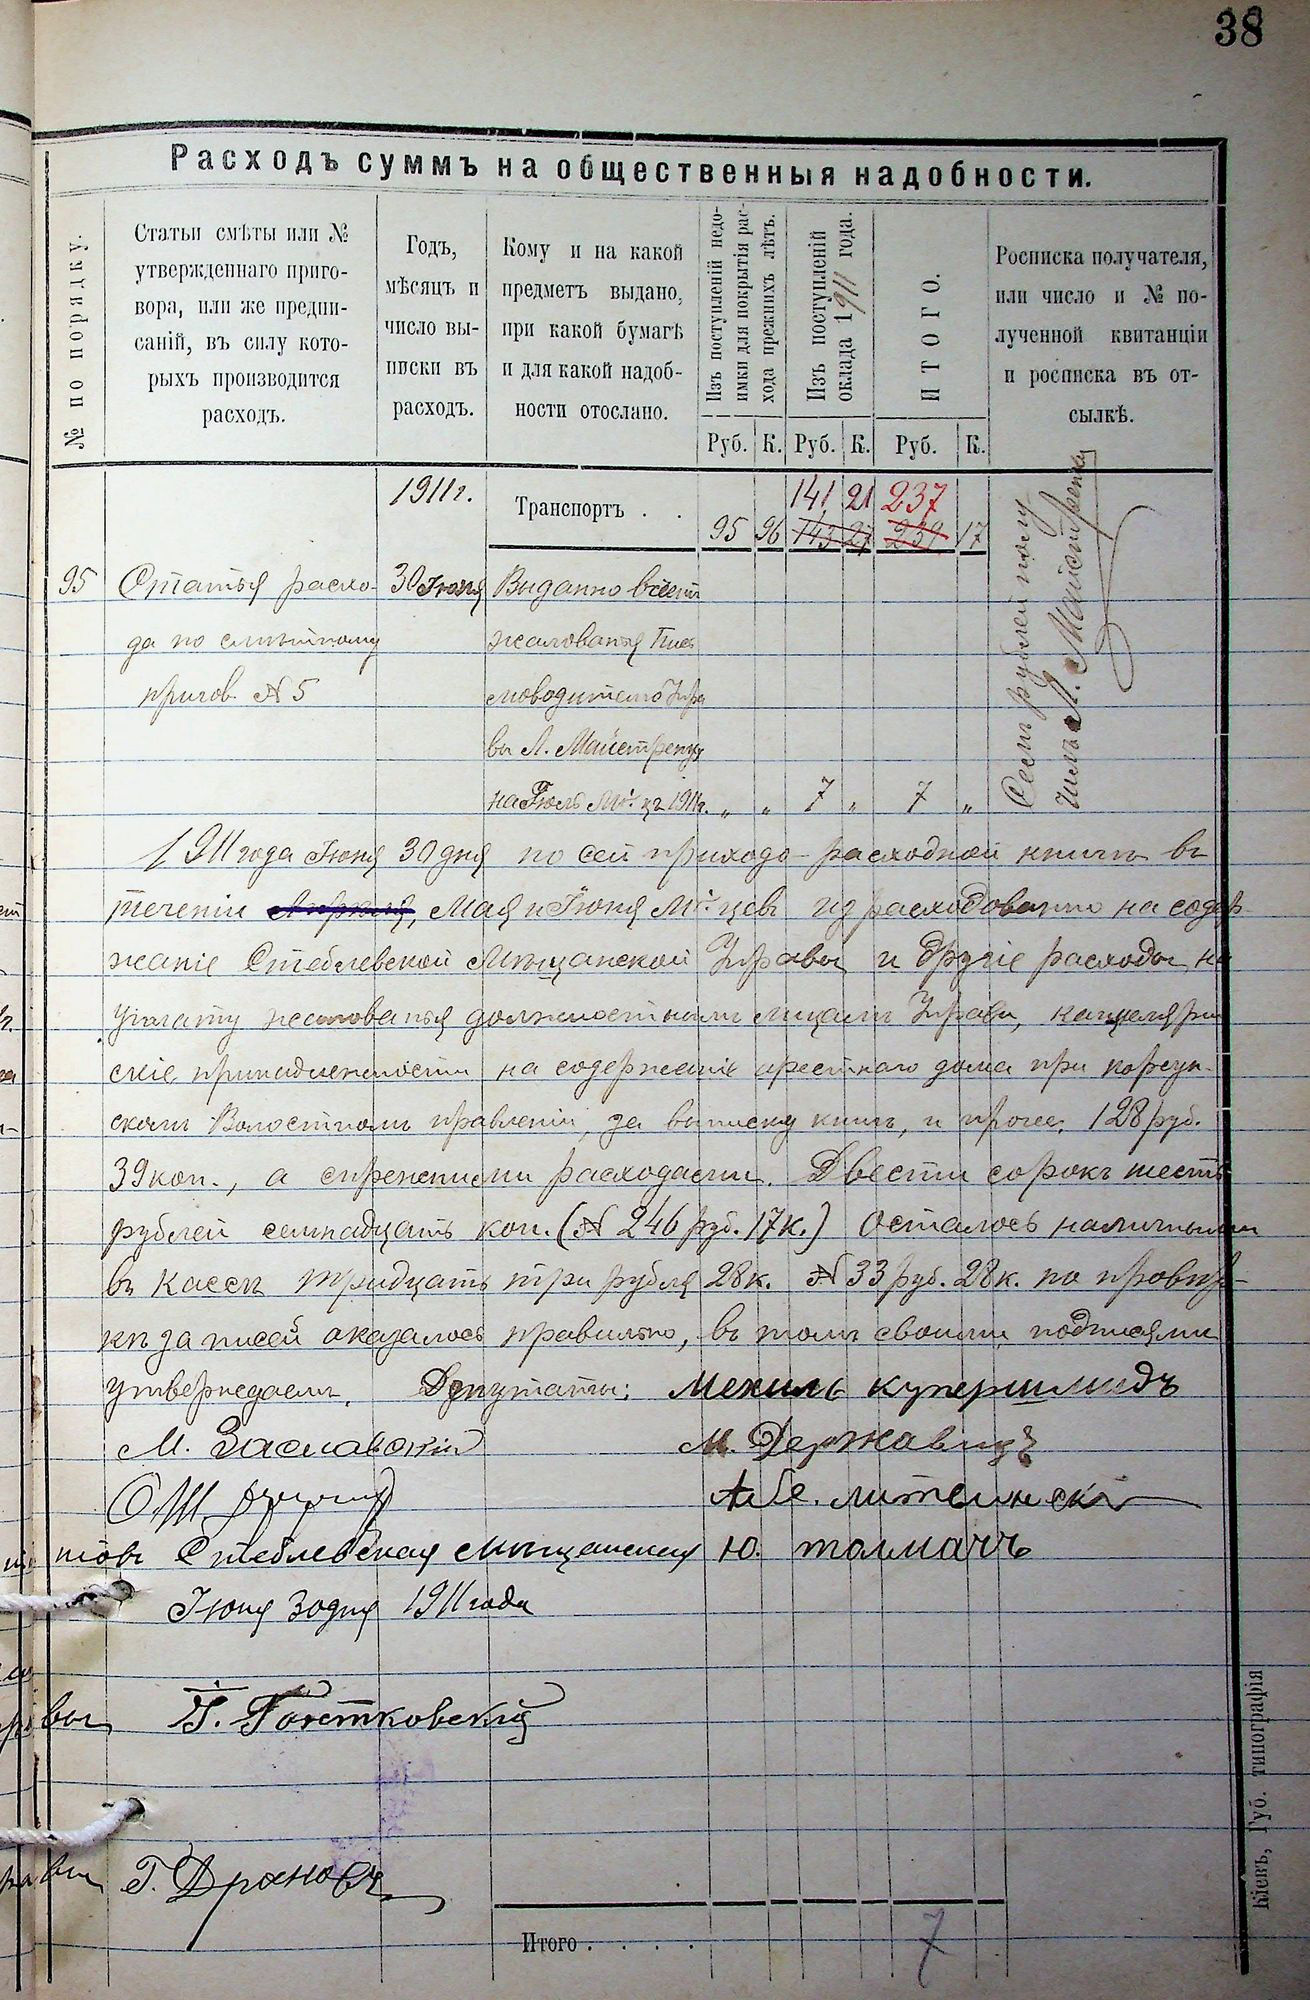 38
Расходъ суммъ на общественныя надобности.
№ по порядку.
Статьи смѣты или №
утвержденнаго приго-
вора, или же предпи-
саній, въ силу кото-
рыхъ производится
расходъ.
Годъ,
мѣсяцъ и
число вы-
писки въ
расходъ.
Кому и на какой
предметъ выдано,
при какой бумагѣ
и для какой надоб-
ности отослано.
Изъ поступленій недо-
имки для покрытія рас-
хода прежнихъ лѣтъ.
Изъ поступленій
оклада 1911 года.
ИТОГО.
Росписка получателя,
или число и № по-
лученной квитанціи
и росписка въ от-
сылкѣ.
Руб. К. Руб. К. Руб. К.
1911г. 141 21 237
Транспортъ . . 95 96 143 27 239 17
95 Статья расхо- 30 Іюня Выданно въ счетъ
да по смѣтному жалованья Пись
пригов. № 5 моводителю Упра
вы Л. Майстренку
на Іюль м-цъ 1911г. „ „ 7 „ 7 „
Семь рублей полу
чилъ Л. Майстренко
1911 года Іюня 30 дня по сей приходо-расходной книгѣ въ
теченіи Апрѣля, Мая и Іюня М-цевъ израсходованно на содер-
жаніе Стеблевской Мѣщанской Управы и другіе расходы на
уплату жалованья должностнымъ лицамъ Управы, канцеляр
скіе принадлежности на содержаніе арестнаго дома при Корсун-
скомъ Волостномъ правленіи, за выписку книгъ, и проче, 128 руб.
39 коп., а съ прежними расходами. Двести сорокъ шесть
рублей семнадцать коп. (№ 246 руб. 17 к.) Осталось наличными
въ кассѣ тридцать три рубля 28 к. № 33 руб. 28 к. по провѣр-
кѣ записей оказалось правильно, въ томъ своими подписями
утверждаемъ. Депутаты: Мехиль Купершмидъ
М. Заславскій М. Державецъ
Абе. Литвинскі
товъ Стеблевская мѣщанская Ю. Толмачъ
Іюня 30 дня 1911 года
вы
Г. Драновъ
Итого . . . . 7
Кіевъ, Губ. типографія